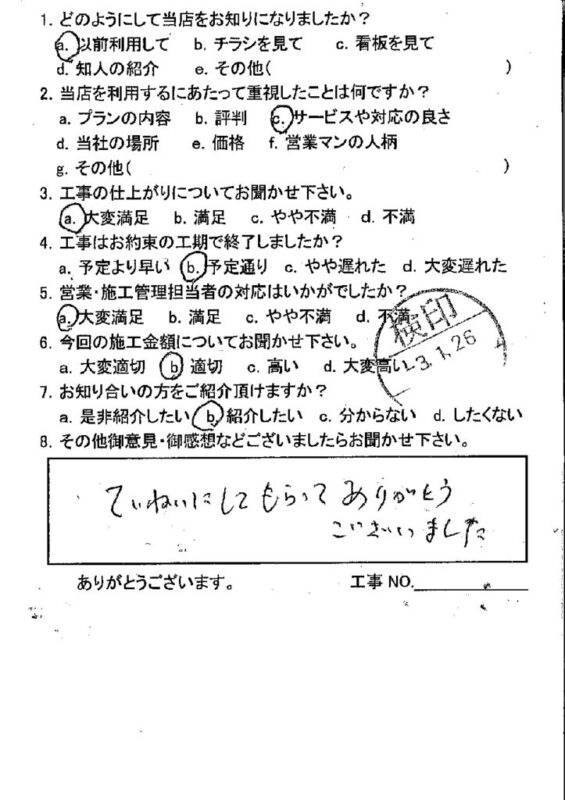 1. どのようにして当店をお知りになりましたか？
a. 以前利用して b. チラシを見て c. 看板を見て
d. 知人の紹介 e. その他( )
2. 当店を利用するにあたって重視したことは何ですか？
a. プランの内容 b. 評判 c. サービスや対応の良さ
d. 当社の場所 e. 価格 f. 営業マンの人柄
g. その他( )
3. 工事の仕上がりについてお聞かせ下さい。
a. 大変満足 b. 満足 c. やや不満 d. 不満
4. 工事はお約束の工期で終了しましたか？
a. 予定より早い b. 予定通り c. やや遅れた d. 大変遅れた
5. 営業・施工管理担当者の対応はいかがでしたか？
a. 大変満足 b. 満足 c. やや不満 d. 不満
検印
-3.1.26
6. 今回の施工金額についてお聞かせ下さい。
a. 大変適切 b 適切 c. 高い d. 大変高い
7. お知り合いの方をご紹介頂けますか？
a. 是非紹介したい b. 紹介したい c. 分からない d. したくない
8. その他御意見・御感想などございましたらお聞かせ下さい。
ていねいにしてもらって ありがとう
ございました
ありがとうございます。 工事 NO.